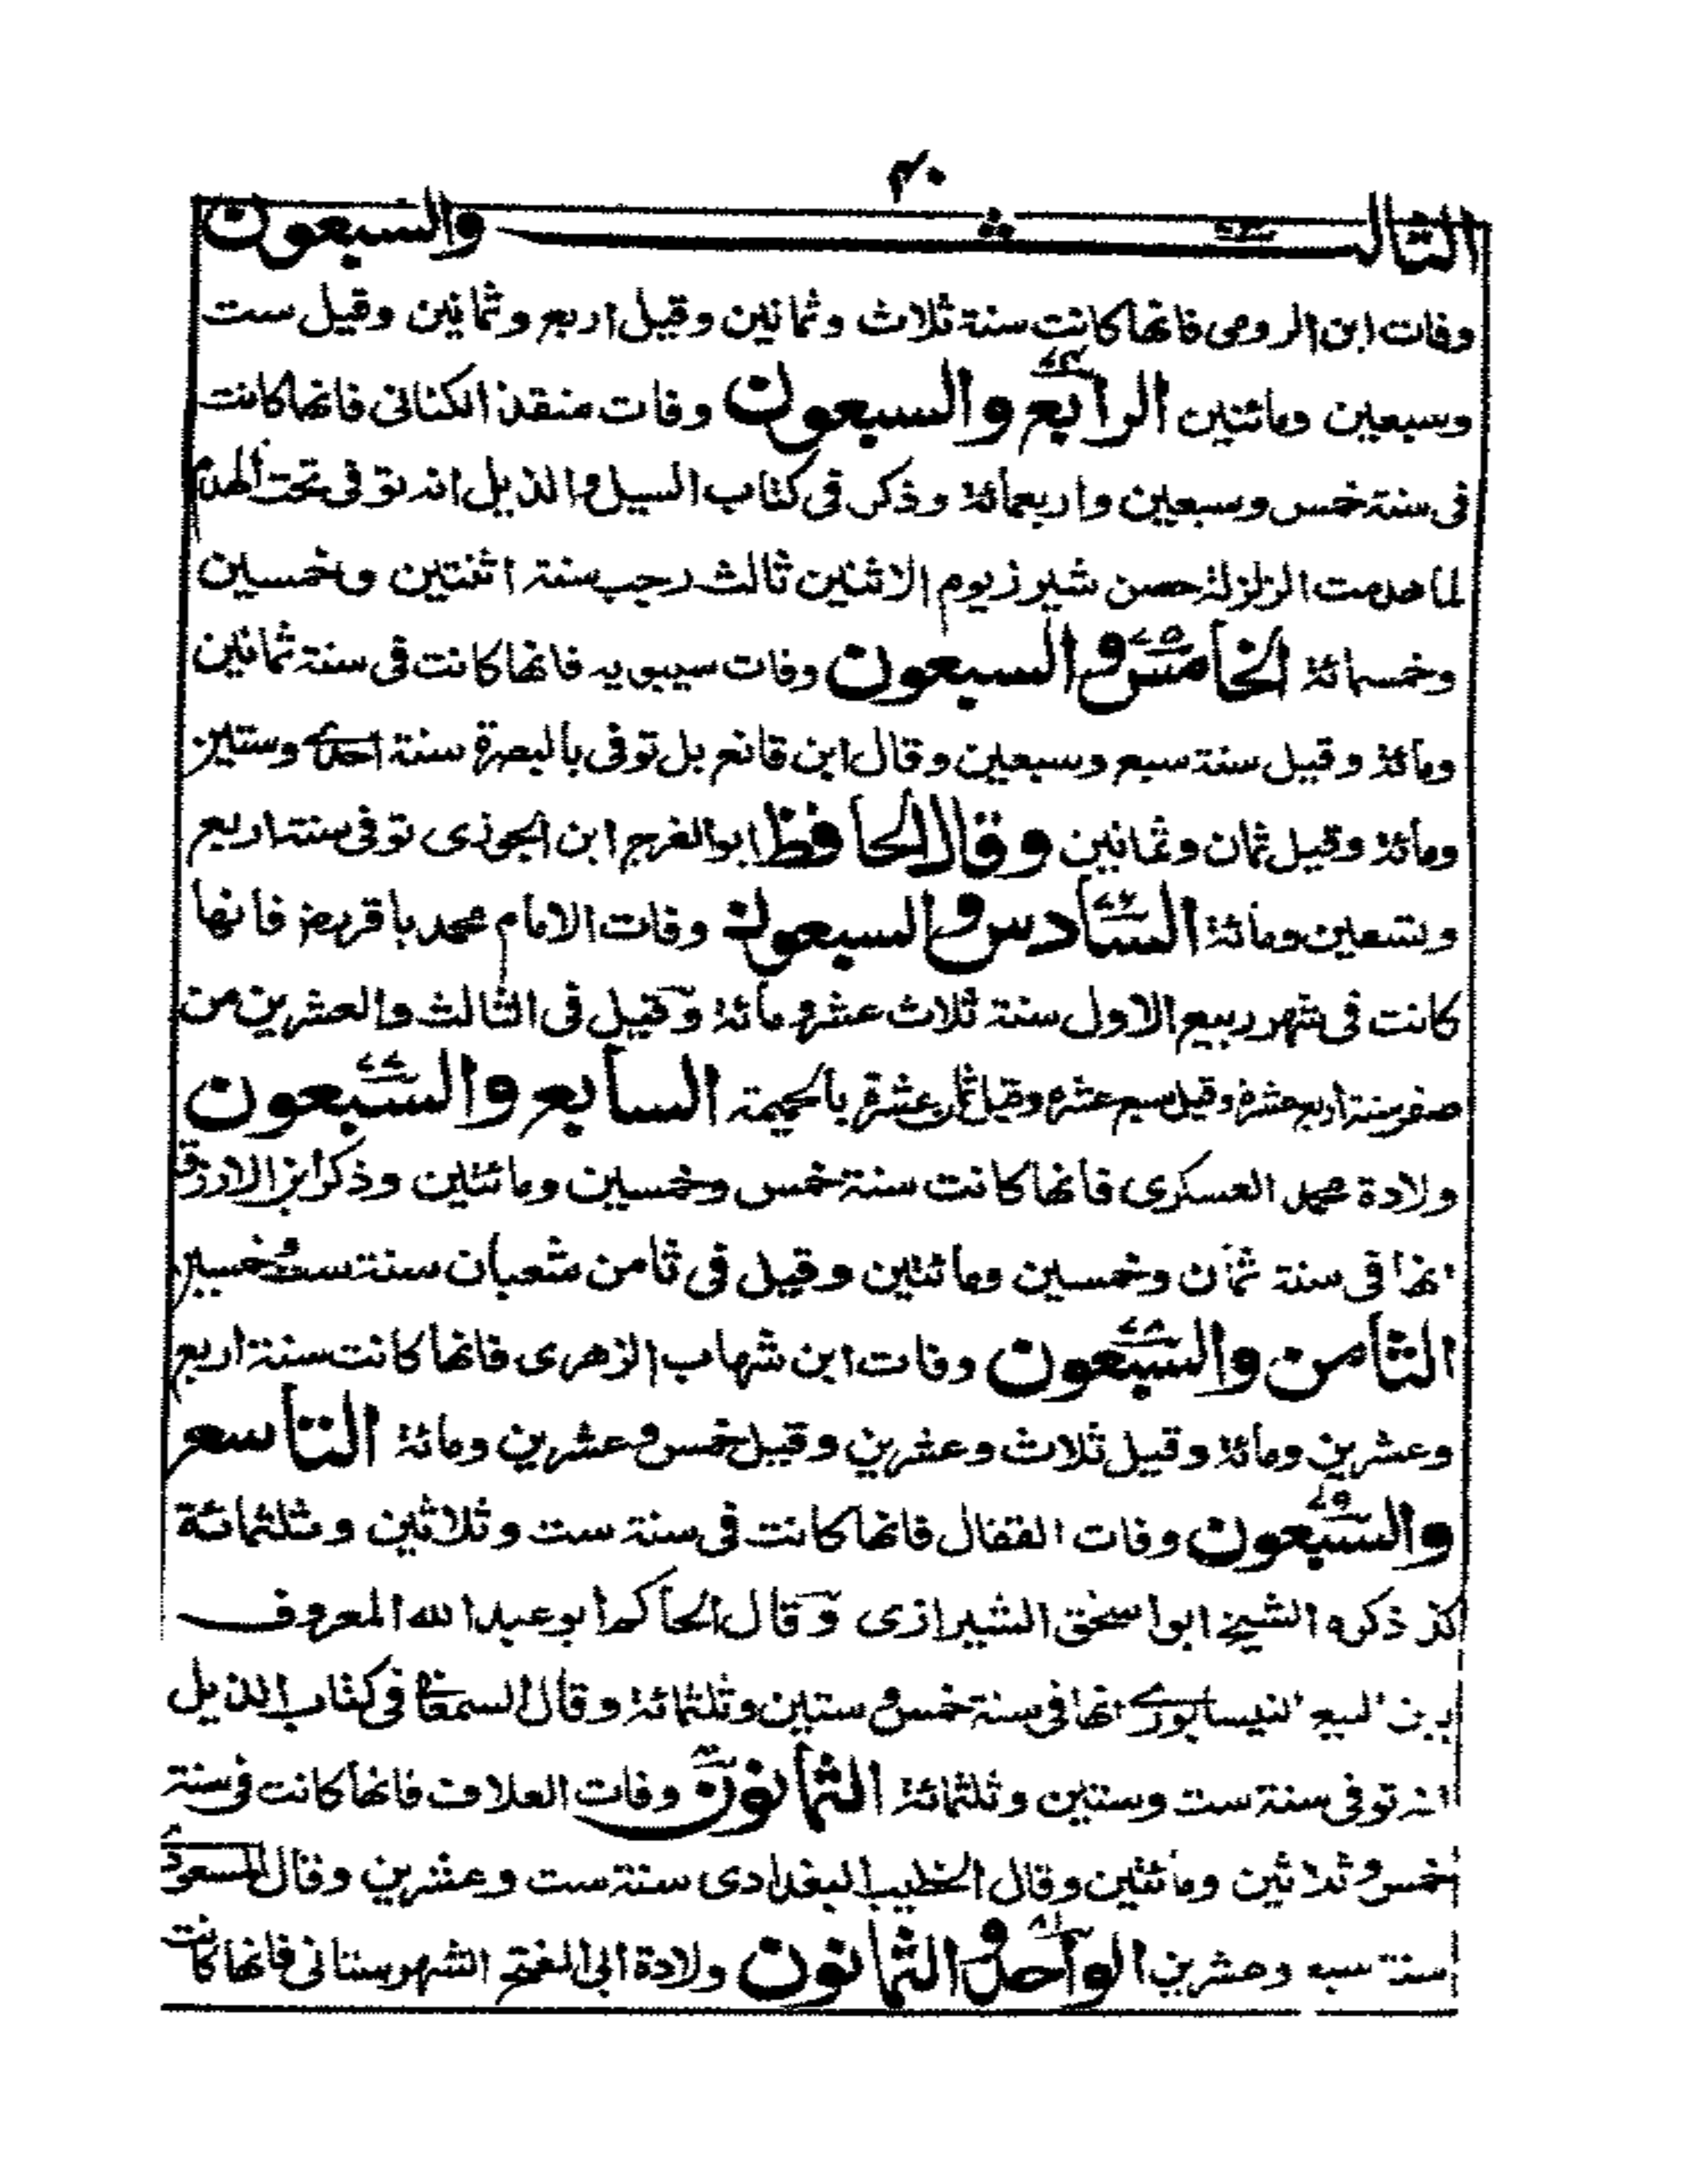 ۴۰
الثالث والسبعون
وفات ابن الرومى فانها كانت سنة ثلاث وثمانين وقيل اربع وثمانين وقيل ست
وسبعين ومائتين الرابع والسبعون وفات منقذ الكنانى فانها كانت
فى سنة خمس وسبعين واربعمائة وذكر فى كتاب السيل والذيل انه توفى تحت الهدم
لما هدمت الزلزلة حصن شيرز يوم الاثنين ثالث رجب سنة اثنتين وخمسين
وخمسمائة الخامس والسبعون وفات سيبويه فانها كانت فى سنة ثمانين
ومائة وقيل سنة سبع وسبعين وقال ابن قانع بل توفى بالبصرة سنة احدى وستين
ومائة وقيل ثمان وثمانين وقال الحافظ ابو الفرج ابن الجوزى توفى سنة اربع
وتسعين ومائة السادس والسبعون وفات الامام محمد باقر رض فانها
كانت فى شهر ربيع الاول سنة ثلاث عشر ومائة وقيل فى الثالث والعشرين من
صفر سنة اربع عشرة وقيل سبع عشرة وقيل ثمان عشرة بالحميمة السابع والسبعون
ولادة محمد العسكرى فانها كانت سنة خمس وخمسين ومائتين وذكر ابن الازرق
انها فى سنة ثمان وخمسين ومائتين وقيل فى ثامن شعبان سنة ست وخمسين
الثامن والسبعون وفات ابن شهاب الزهرى فانها كانت سنة اربع
وعشرين ومائة وقيل ثلاث وعشرين وقيل خمس وعشرين ومائة التاسع
والسبعون وفات القفال فانها كانت فى سنة ست وثلاثين وثلثمائة
كذ ذكره الشيخ ابو اسحق الشيرازى وقال الحاكم ابو عبد الله المعروف
بابن البيع النيسابورى انها فى سنة خمس وستين وثلثمائة وقال السمعانى فى كتاب الذيل
انه توفى سنة ست وستين وثلثمائة الثمانون وفات العلاف فانها كانت فى سنة
خمس وثلاثين ومائتين وقال الخطيب البغدادى سنة ست وعشرين وقال المسعودى
سنة سبع وعشرين الواحد والثمانون ولادة ابى الفتح الشهرستانى فانها كانت